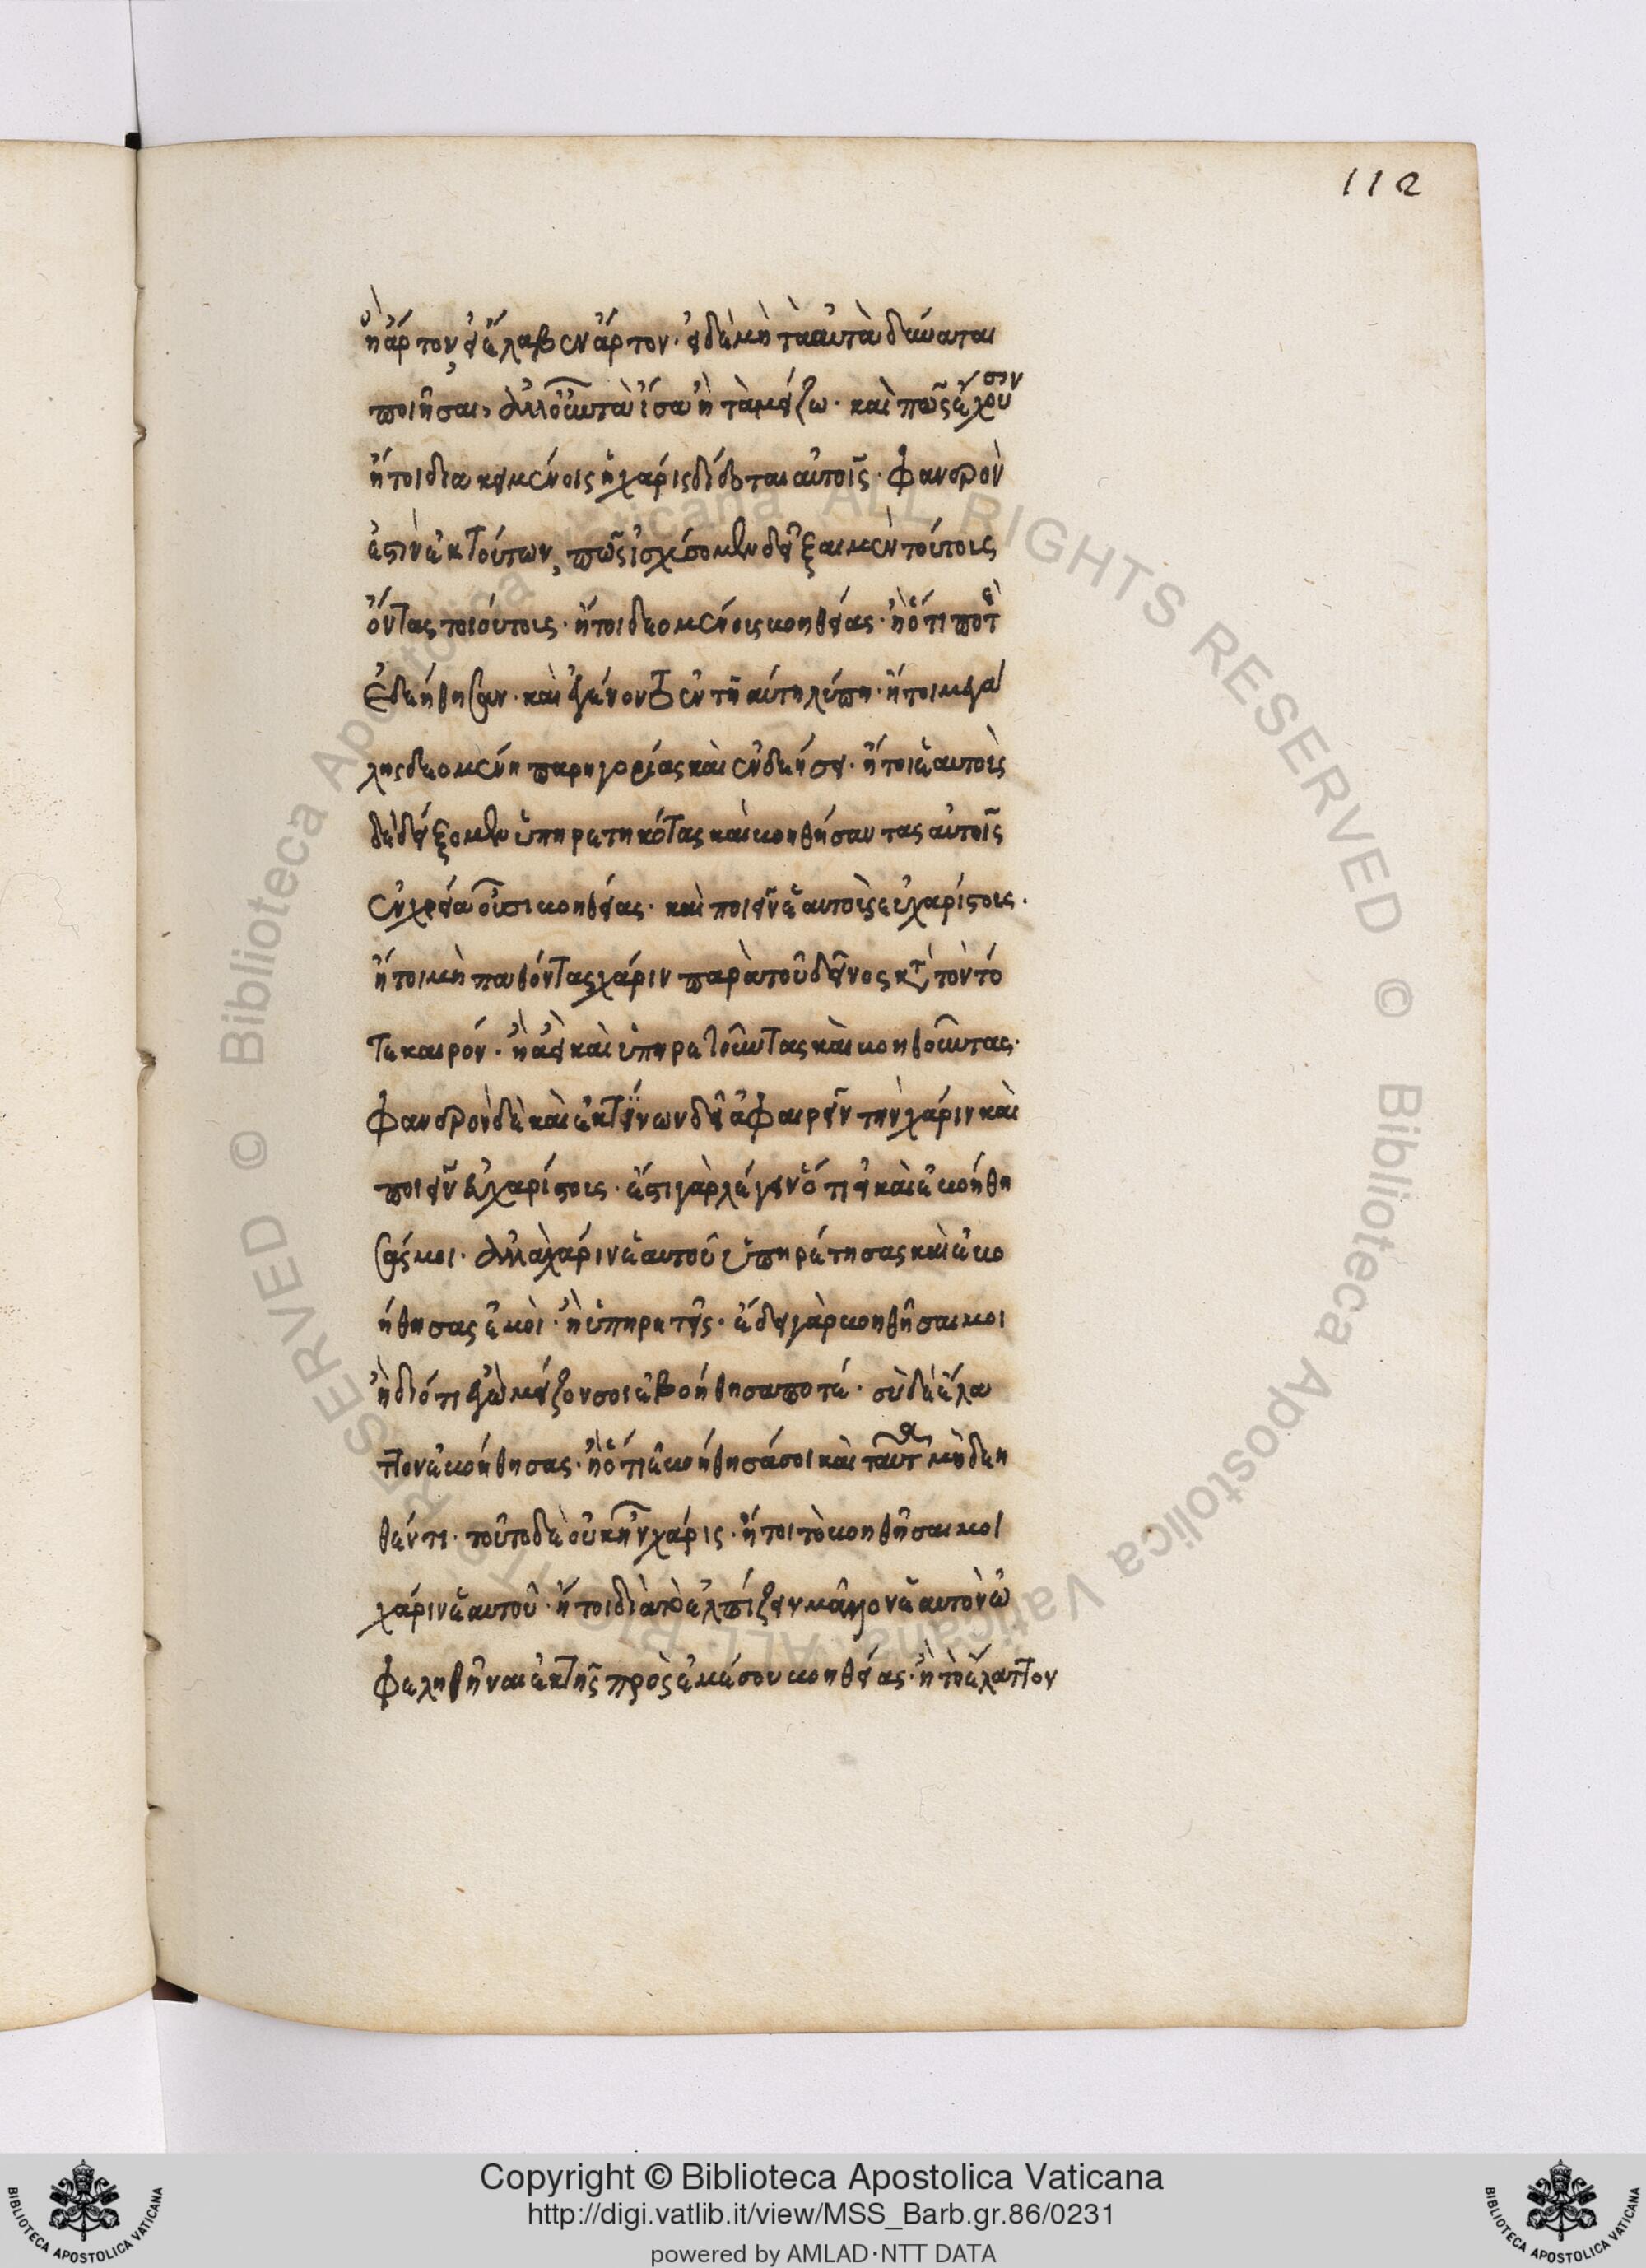 112
ἢ ἄρτον, εἰ ἔλαβεν ἄρτον· εἰ δὲ μὴ τὰ αὐτὰ δύναται
ποιῆσαι, ἀλλ' οὖν τὰ ἴσα ἢ τὰ μείζω· καὶ πῶς ἔχουσιν
ἤτοι διακειμένοις ἡ χάρις δίδοται αὐτοῖς· φανερὸν
ἐστὶν ἐκ τούτων, πῶς ἰσχύσομεν δεῖξαι μὲν τούτοις
ὄντας τοιούτοις· ἤτοι δεομένοις βοηθείας· ἢ ὅτι ποτὲ
ἐδεήθησαν· καὶ ἐγένοντο ἐν τῇ αὐτῇ λύπῃ· ἤτοι μεγά
λης δεομένη παρηγορίας καὶ ἐν δεήσει· ἤτοι ἑαυτοὶς
δὲ δείξομεν ὑπηρετηκότας καὶ βοηθήσαντας αὐτοῖς
ἐν χρείᾳ οὖσι βοηθείας· καὶ ποιεῖν ἑαυτοὶς εὐχαρίστοις·
ἤτοι μὴ παθόντας χάριν παρὰ τοῦ δεῖνος κατὰ τὸν τό
τε καιρόν· ἢ ἀεὶ καὶ ὑπηρετοῦντας καὶ βοηθοῦντας·
φανερὸν δὲ καὶ ἐκ τίνων δεῖ ἀφαιρεῖν τὴν χάριν καὶ
ποιεῖν ἀχαρίστοις· ἔστι γὰρ λέγειν ὅτι εἰ καὶ ἐβοήθη
σάς μοι· ἀλλὰ χάριν ἑαυτοῦ ὑπηρέτησας καὶ ἐβο
ήθησας ἐμοὶ· ἢ ὑπηρετεῖς· ἔδει γὰρ βοηθῆσαι μοι
ἢ διότι ἐγὼ μεῖζον σοι ἐβοήθησα ποτέ· σὺ δὲ ἔλα
ττον ἐβοήθησας· ἢ ὅτι ἐβοήθησά σοι καὶ ταῦτα μὴ δεη
θέντι· τοῦτο δὲ οὐκ ἦν χάρις· ἤτοι τὸ βοηθῆσαι μοι
χάριν ἑαυτοῦ· ἤτοι διὰ τὸ ἐλπίζειν μᾶλλον ἑαυτὸν ὠ
φεληθῆναι ἐκ τῆς πρὸς ἐμέ σου βοηθείας· ἢ τὸ ἔλαττον
Copyright © Biblioteca Apostolica Vaticana
http://digi.vatlib.it/view/MSS_Barb.gr.86/0231
powered by AMLAD·NTT DATA
BIBLIOTECA APOSTOLICA VATICANA
BIBLIOTECA APOSTOLICA VATICANA
© Biblioteca Apostolica Vaticana ALL RIGHTS RESERVED © Biblioteca Apostolica Vaticana ALL RIGHTS RESERVED